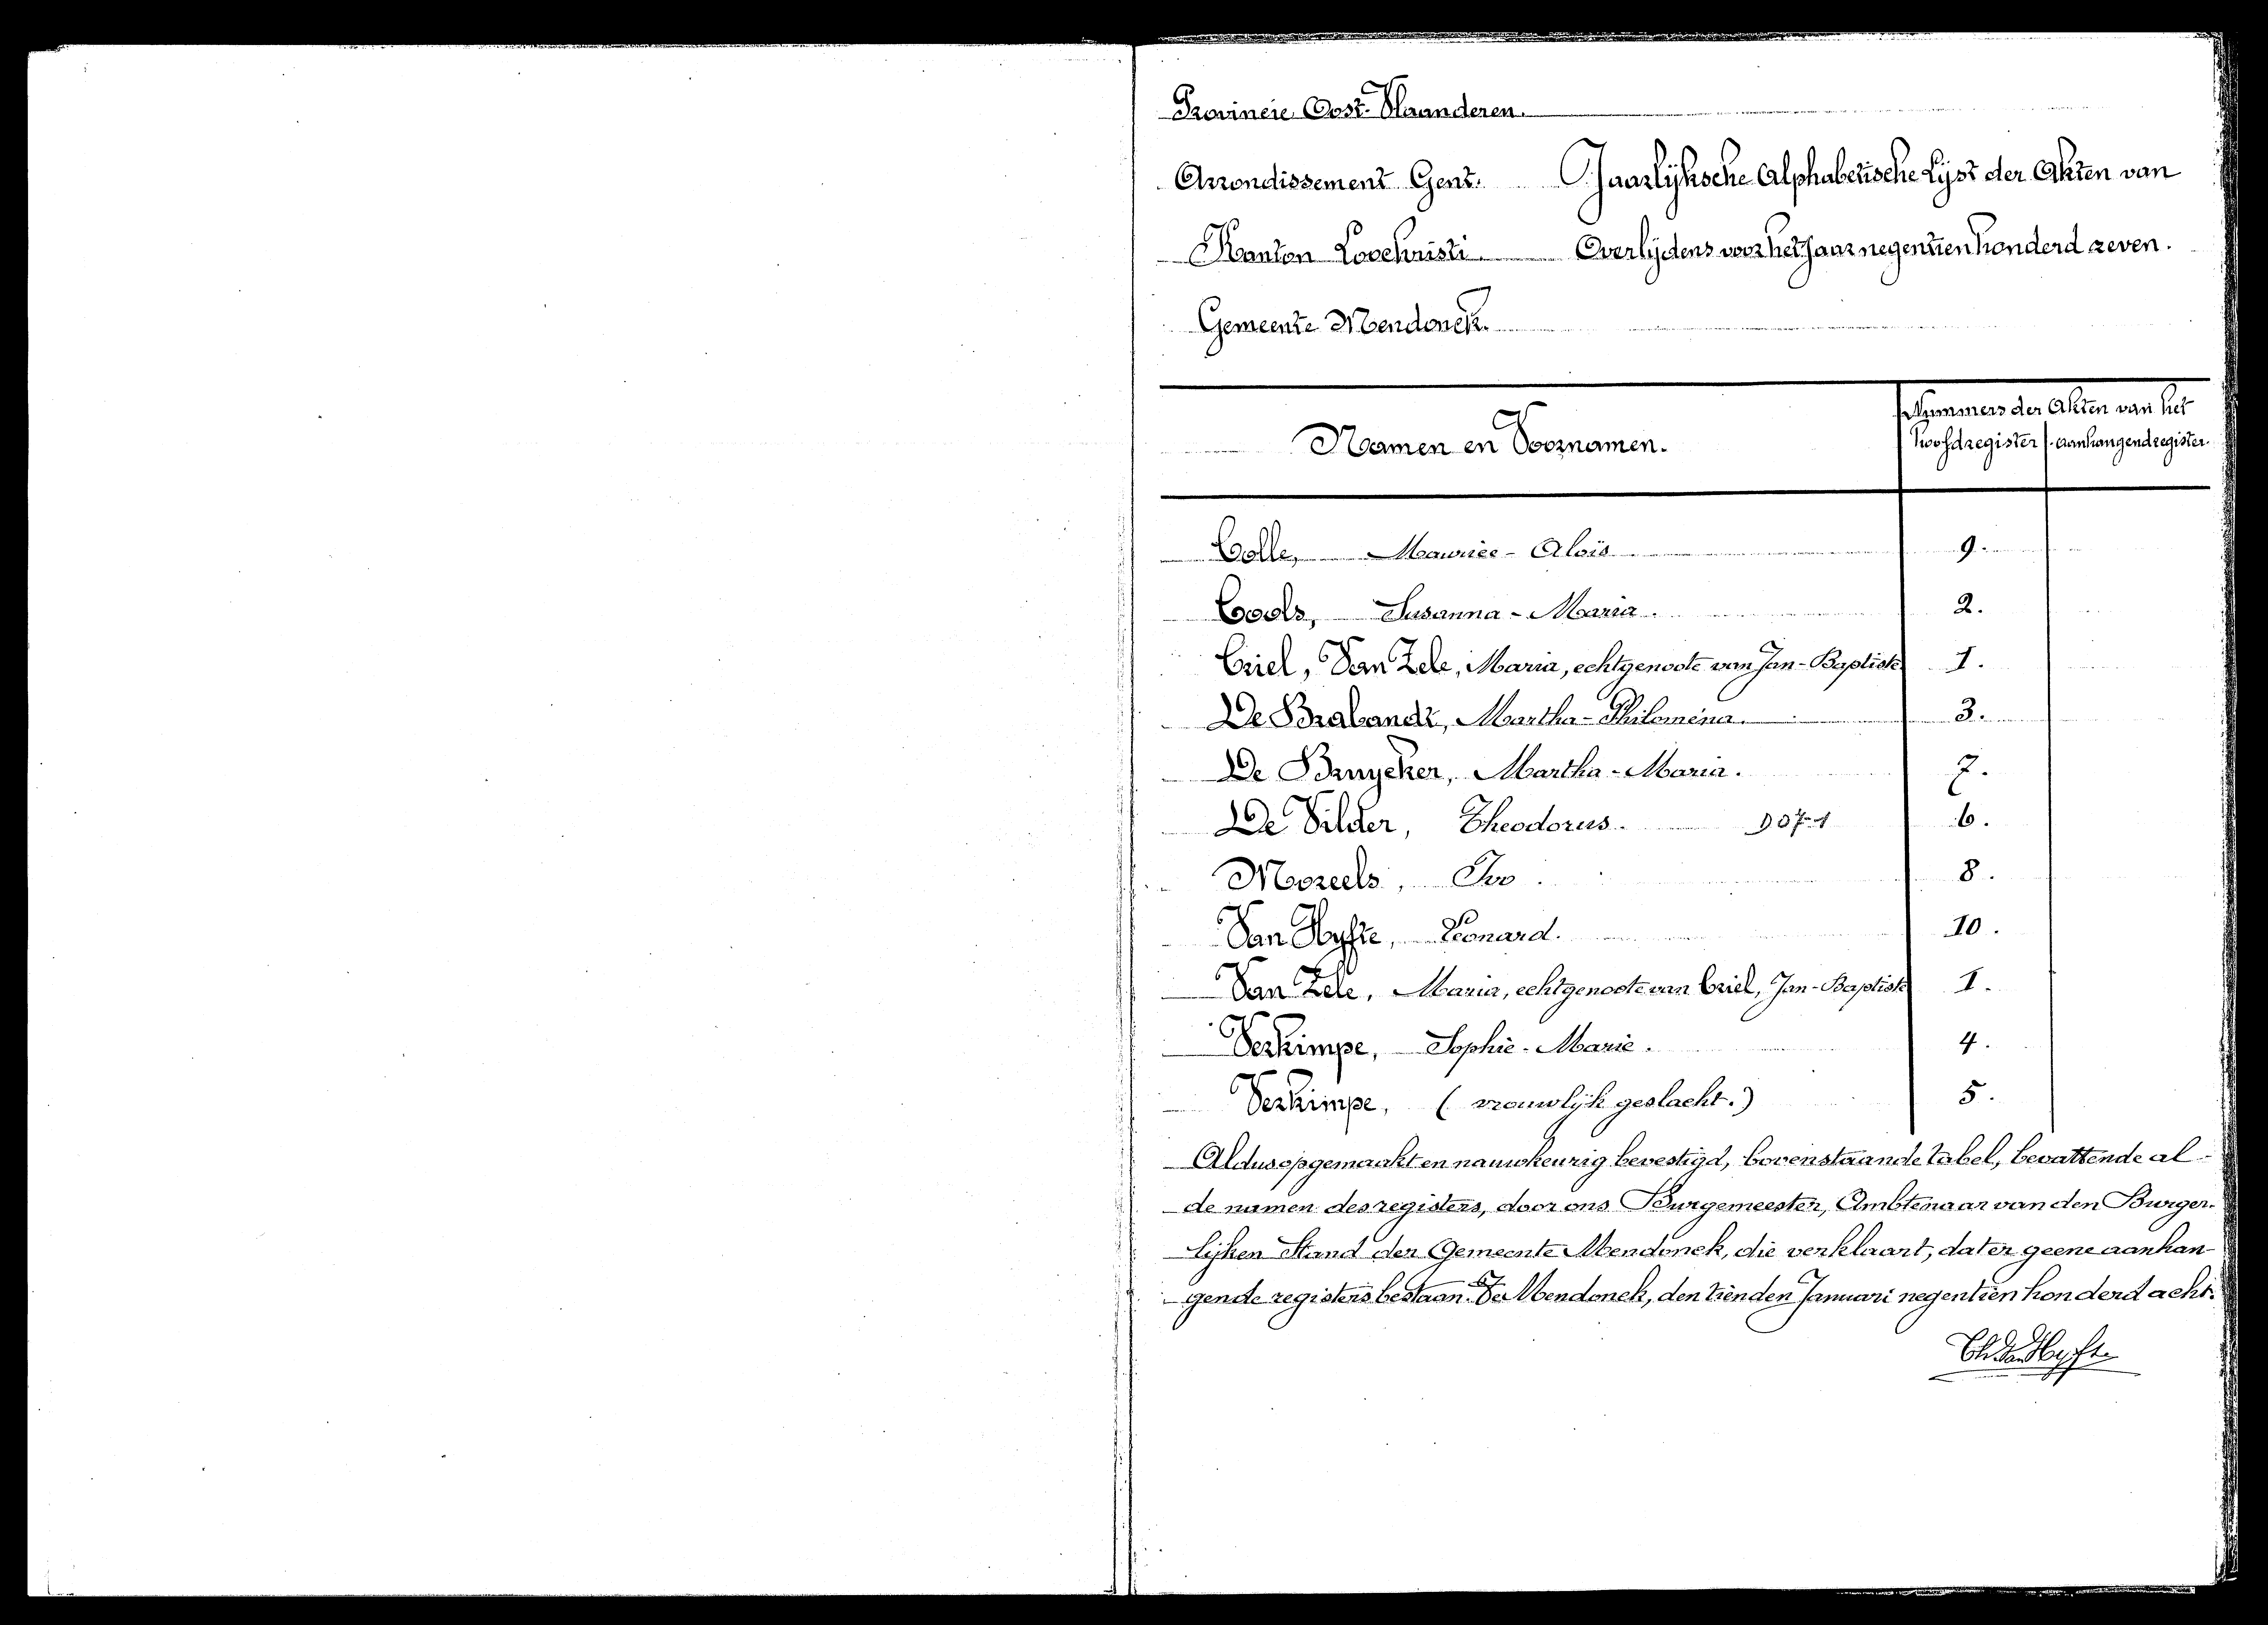 Provincie Oost-Vlaanderen.
Arrondissement Gent. Jaarlijksche Alphabetische Lijst der Akten van
Kanton Loochristi Overlijdens voor het Jaar negentien honderd zeven.
Gemeente Mendonck.
Namen en Voornamen. Nummers der Akten van het
hoofdregister aanhangendregister.
Colle, Maurice-Aloïs 9.
Cools, Susanna-Maria. 2.
Criel, Van Zele, Maria, echtgenoote van Jan-Baptiste 1.
De Brabandt, Martha-Philomena. 3.
De Bruycker, Martha-Maria. 7.
De Vilder, Theodorus. 6.
Moreels, Ivo. 8.
Van Hyfte, Leonard. 10.
Van Zele, Maria, echtgenoote van Criel, Jan-Baptiste 1.
Verkimpe, Sophie-Marie. 4.
Verkimpe, (vrouwlijk geslacht.) 5.
Aldus opgemaakt en nauwkeurig bevestigd, bovenstaande tabel, bevattende al-
de namen des registers, door ons Burgemeester, Ambtenaar van den Burger-
lijken Stand der Gemeente Mendonck, die verklaart, dat er geene aanhan-
gende registers bestaan. Te Mendonck, den tienden Januari negentien honderd acht.
Ch. Van Hyfte